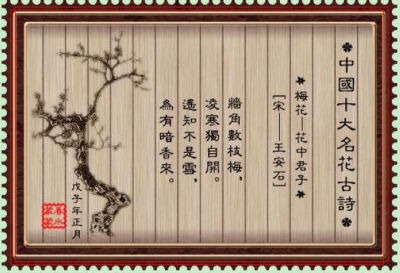 ✽中國十大名花古詩✽
✽梅花——花中君子✽
［宋——王安石］
牆角數枝梅，
凌寒獨自開。
遥知不是雪，
為有暗香來。
戊子年正月